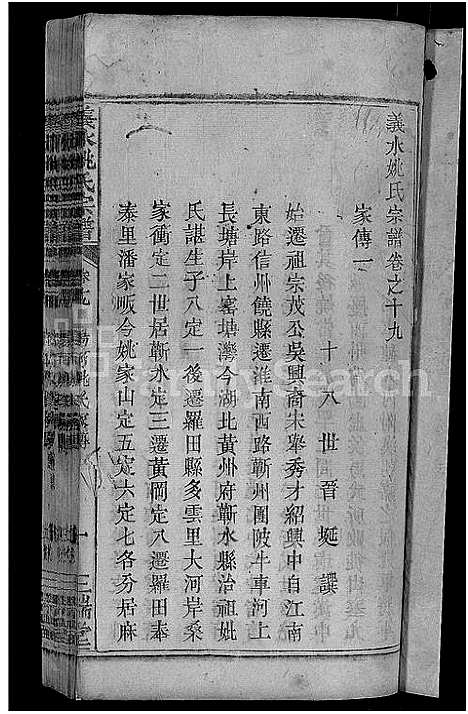 義水姚氏宗譜卷之十九
家傳一
十八世晉埏譔
始遷祖宗茂公吳興裔宋舉秀才紹興中自江南
東路信州饒縣遷淮南西路蘄州團陂牛車河上
長塘岸上窑塘灣今湖北黃州府蘄水縣治祖妣
氏諶生子八定一後遷羅田縣多雲里大河岸桑
家衝定二世居蘄水定三遷黃岡定八遷羅田奉
泰里潘家畈今姚家山定五定六定七各分居麻
義水姚氏宗譜
一
三瑞堂
FamilySearch